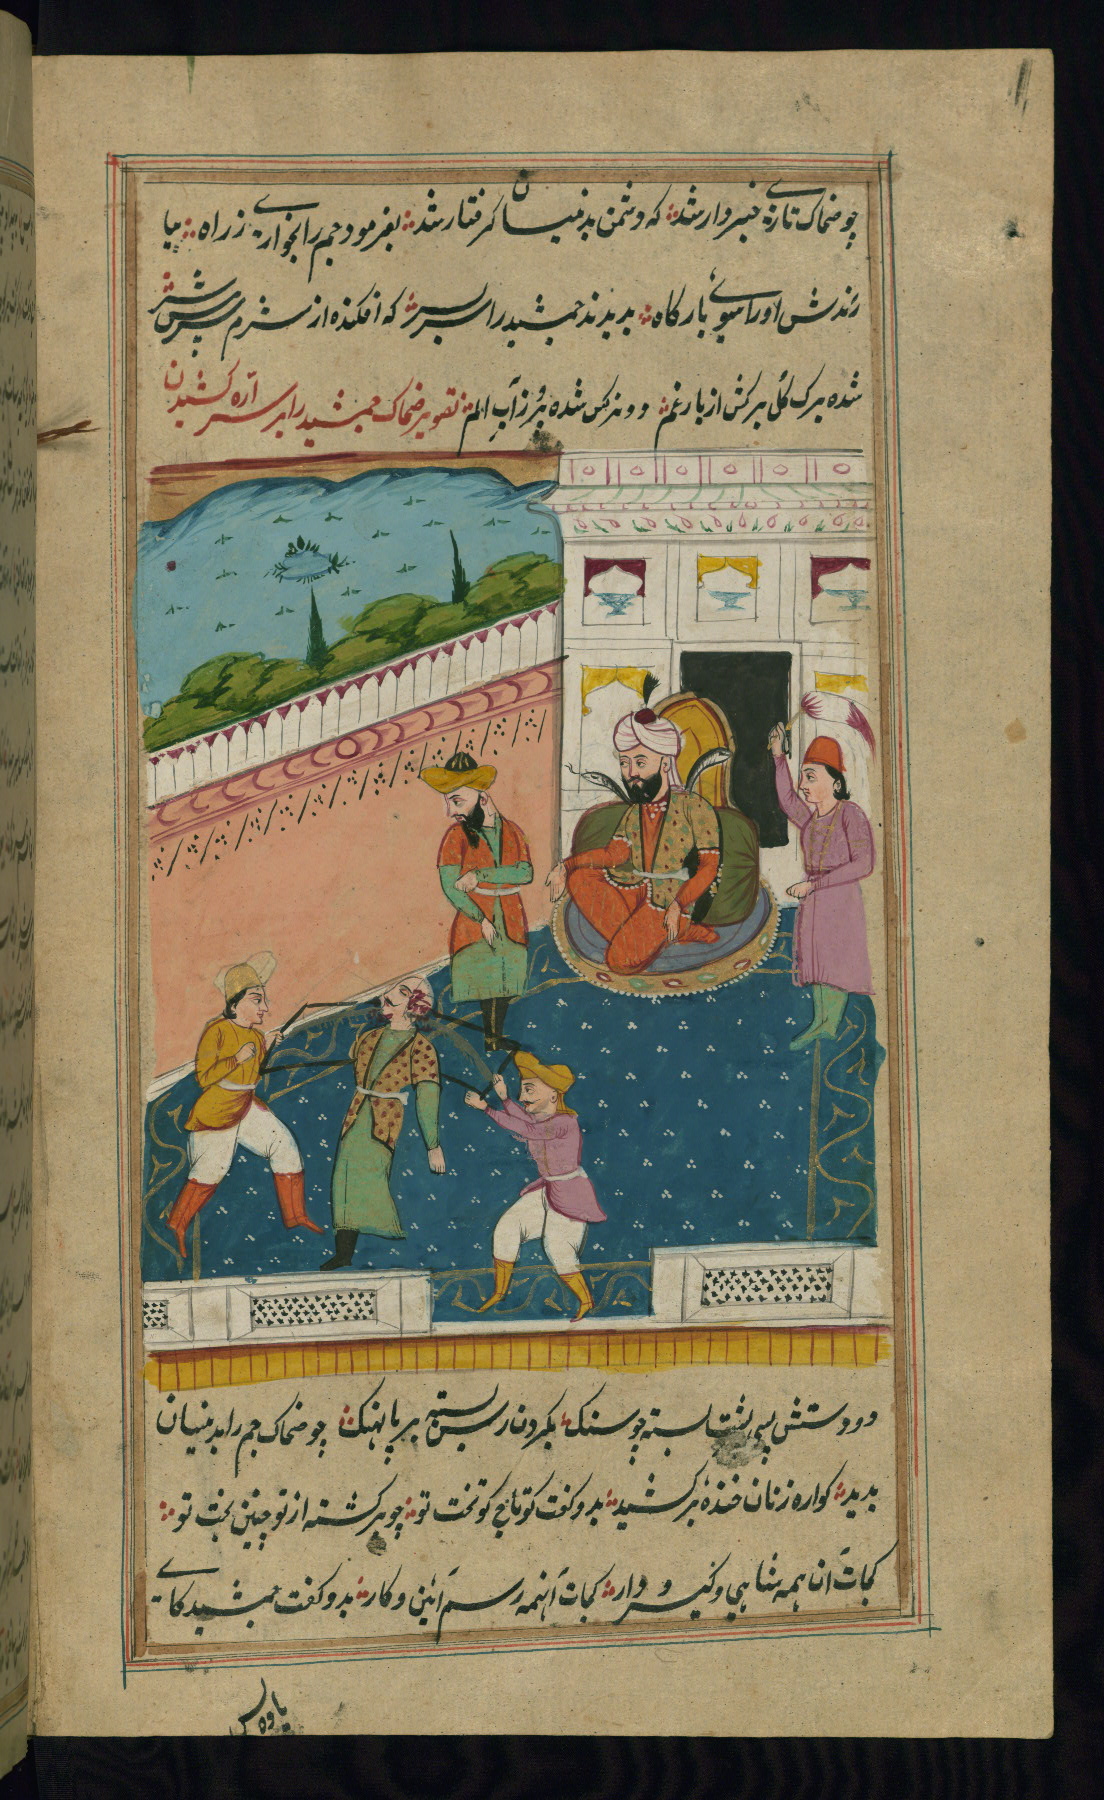 چو ضحاک تازی خبردار شد ؞ که دشمن بدینسان گرفتار شد ؞ بفرمود جم را بخواری ز راه ؞ بیا
رندش اورا سوی بارکاه ؞ بدیدند جمشید را سربسر ؞ که افکنده از شرم در پیش سر
شده برک کل برکش از بار غم ؞ دو نرکس شده پر ز آب الم ؞ تصویر ضحاک جمشید را بر سر اره کشیدن
دو دستش پس پشت بسته چو سنک ؞ بکردن رسن بسته بر پا پهنک ؞ چو ضحاک جم را بدینسان
بدید ؞ کواره زنان خنده برکشید ؞ بدو کفت کو تاج کو تخت تو ؞ چو برکشته از تو چنین بخت تو ؞
کجات آن همه شاهی و کیر و دار ؞ کجات آنهمه رسم آئین و کار ؞ بدو کفت جمشید کای